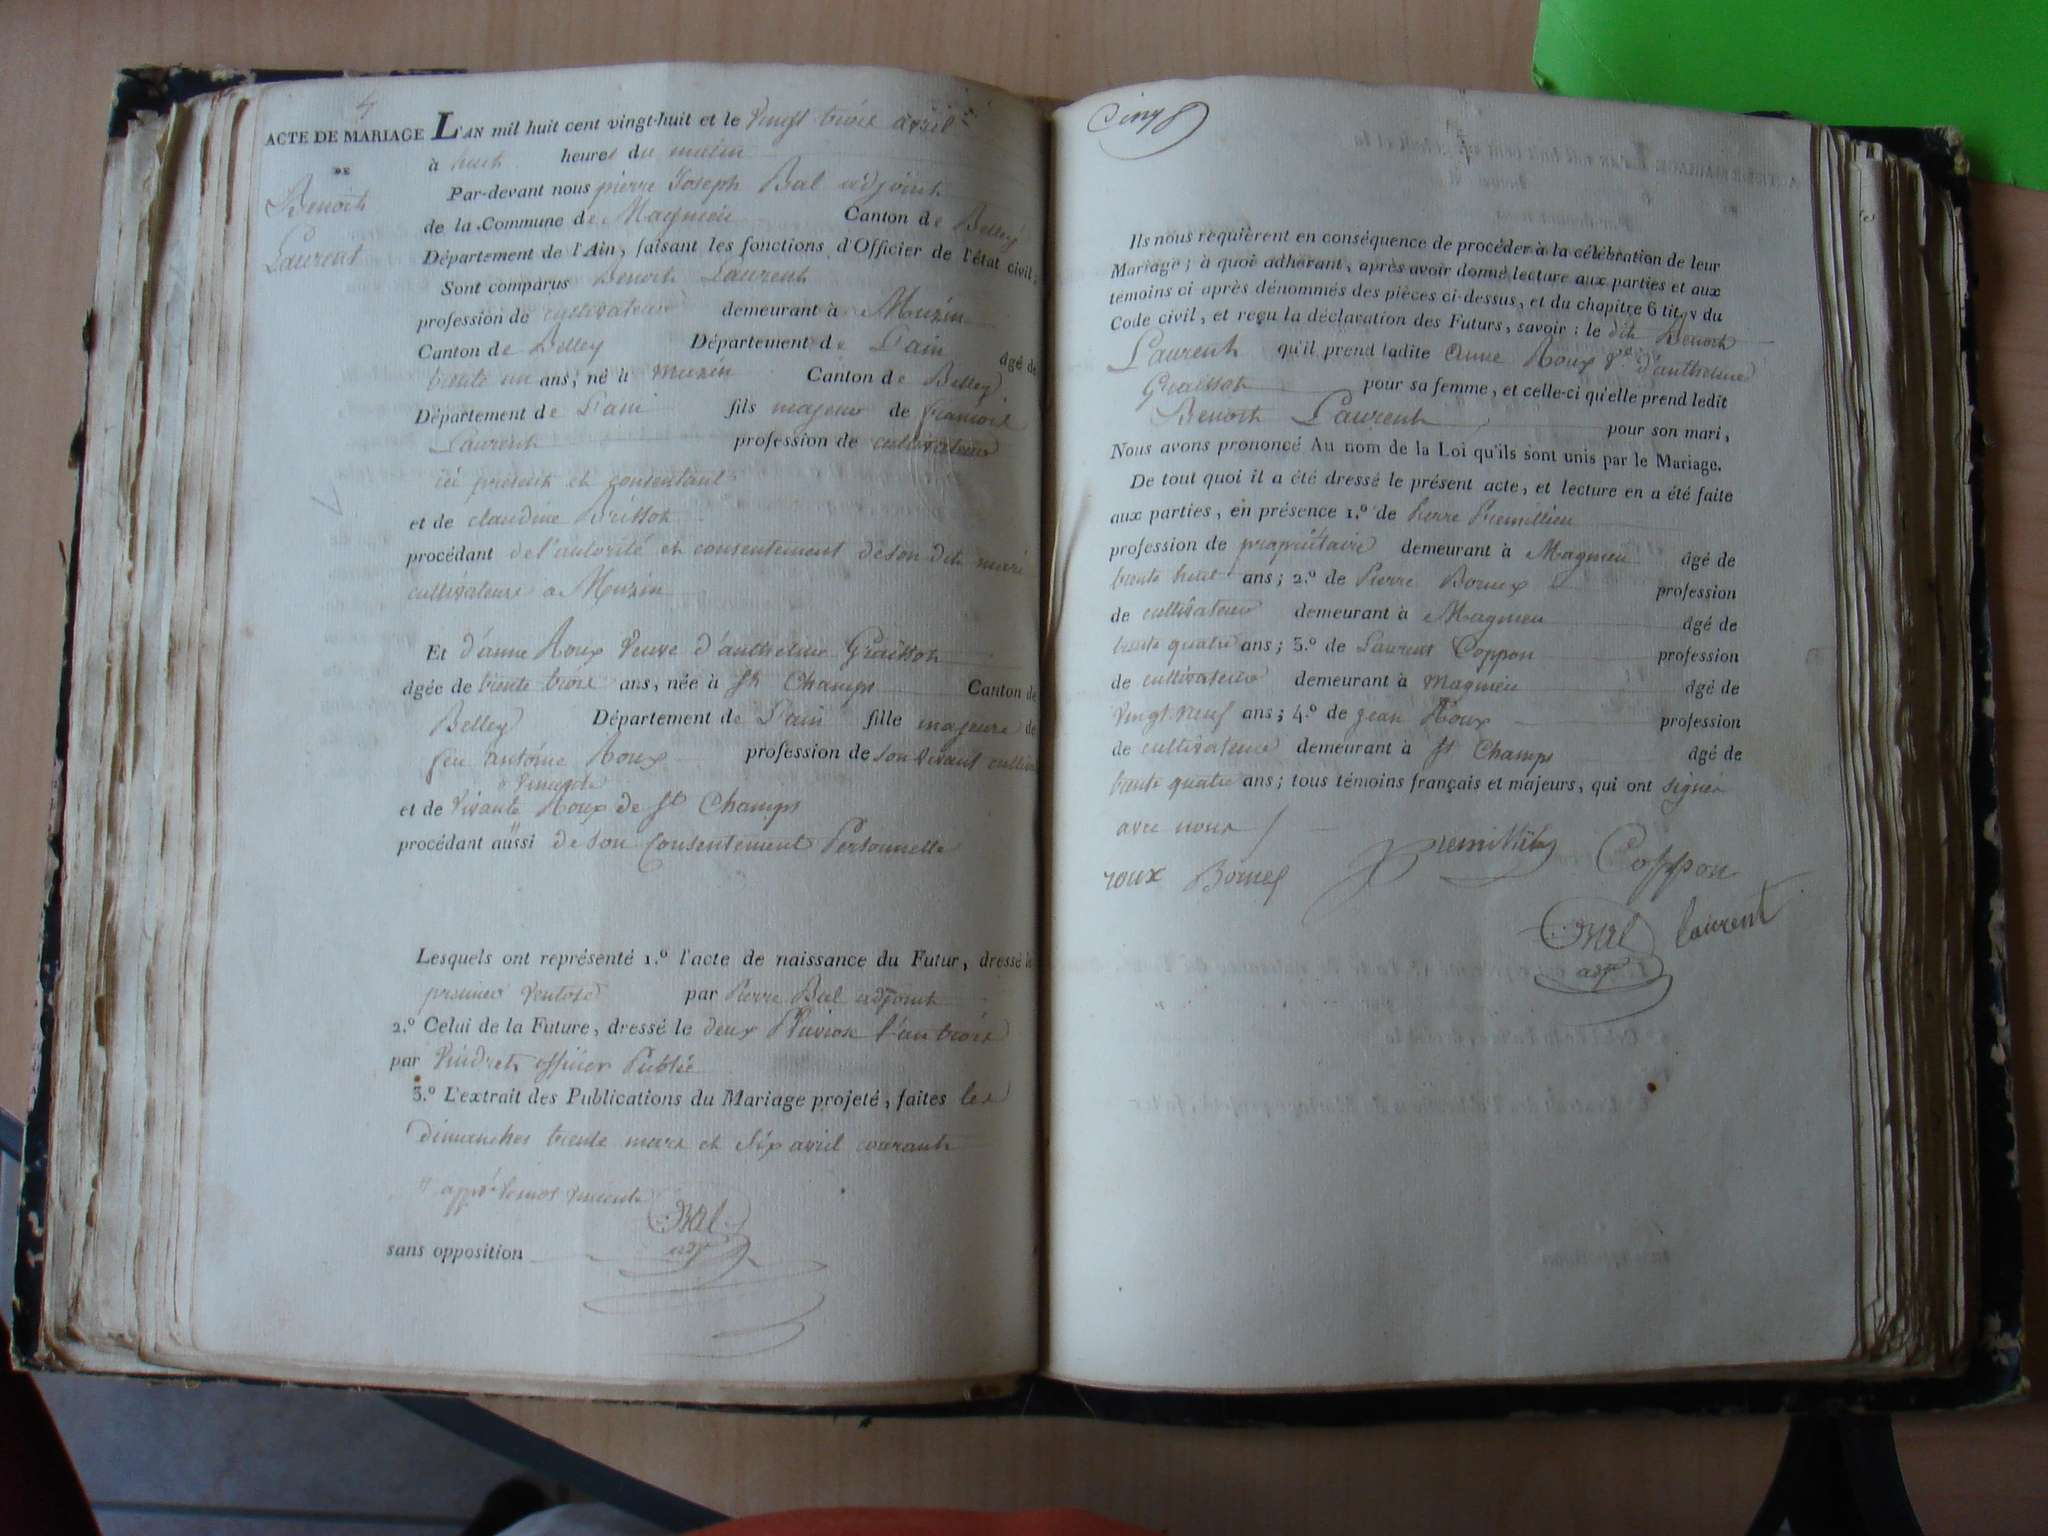 4
ACTE DE MARIAGE L'AN mil huit cent vingt-huit et le vingt trois avril
DE
à huit heures du matin
Benoit
Par-devant nous pierre Joseph Bal adjoint
de la Commune de Magnieu Canton de Belley
Laurent
Département de l'Ain, faisant les fonctions d'Officier de l'état civil;
Sont comparus Benoit Laurent
profession de cultivateur demeurant à Muzin
Canton de Belley Département de L'ain âgé de
trente un ans; né à Muzin Canton de Belley
Département de L'ain fils majeur de francois
Laurent profession de cultivateur
ici présent et consentant
et de claudine Brisson
procédant de l'autorité et consentement de son dit mari
cultivateurs a Muzin
Et d'anne Roux veuve d'anthelme Graisson
âgée de trente trois ans, née à St Champs Canton de
Belley Département de L'ain fille majeure de
feu antoine Roux profession de son vivant cultiv
et de vivante Roux de St Champs
procédant aussi de son Consentement Personnelle
Lesquels ont représenté 1.º l'acte de naissance du Futur, dressé le
premier ventose par Pierre Bal adjoint
2.º Celui de la Future, dressé le deux Pluviose l'an trois
par officier Public
3.º L'extrait des Publications du Mariage projeté, faites les
dimanches trente mars et six avril courant
Bal
adjt
sans opposition
Cinq
Ils nous requièrent en conséquence de procéder à la célébration de leur
Mariage; à quoi adhérant, après avoir donné lecture aux parties et aux
témoins ci après dénommés des pièces ci-dessus, et du chapitre 6 tit. v du
Code civil, et reçu la déclaration des Futurs, savoir: le dit Benoit
Laurent qu'il prend ladite anne Roux Ve d'anthelme
Graisson pour sa femme, et celle-ci qu'elle prend ledit
Benoit Laurent pour son mari,
Nous avons prononcé Au nom de la Loi qu'ils sont unis par le Mariage.
De tout quoi il a été dressé le présent acte, et lecture en a été faite
aux parties, en présence 1.º de Pierre Premillieu
profession de propriétaire demeurant à Magnieu âgé de
trente huit ans; 2.º de Pierre Bornex profession
de cultivateur demeurant à Magnieu âgé de
trente quatre ans; 3.º de Laurent Coppon profession
de cultivateur demeurant à Magnieu âgé de
vingt neuf ans; 4.º de jean Roux profession
de cultivateur demeurant à St Champs âgé de
trente quatre ans; tous témoins français et majeurs, qui ont signé
avec nous
roux Bornex Premillieu Coppon
Bal laurent
adjt